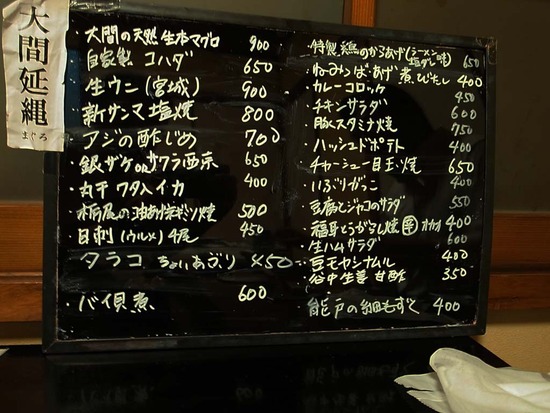 大間延縄
まぐろ
・大間の天然生本マグロ 900
・自家製コハダ 650
・生ウニ(宮城) 900
・新サンマ塩焼 800
・アジの酢じめ 700
・銀ザケorサワラ西京 650
・丸干ワタ入イカ 400
・栃尾の油あげネギミソ焼 500
・目刺(ウルメ)4尾 450
・タラコちょいあぶり 450
・バイ貝煮 600
・特製鶏のからあげ(ラーメン塩ダレ味) 650
・ねーみつばあげ煮びたし 400
・カレーコロッケ 450
・チキンサラダ 600
・豚スタミナ焼 750
・ハッシュドポテト 400
・チャーシュー目玉焼 650
・いぶりがっこ 400
・豆腐とジャコのサラダ 550
・福耳とうがらし焼 辛 オカカ 400
・生ハムサラダ 600
・豆モヤシナムル 400
・谷中生姜甘酢 350
・能戸の細もずく 400